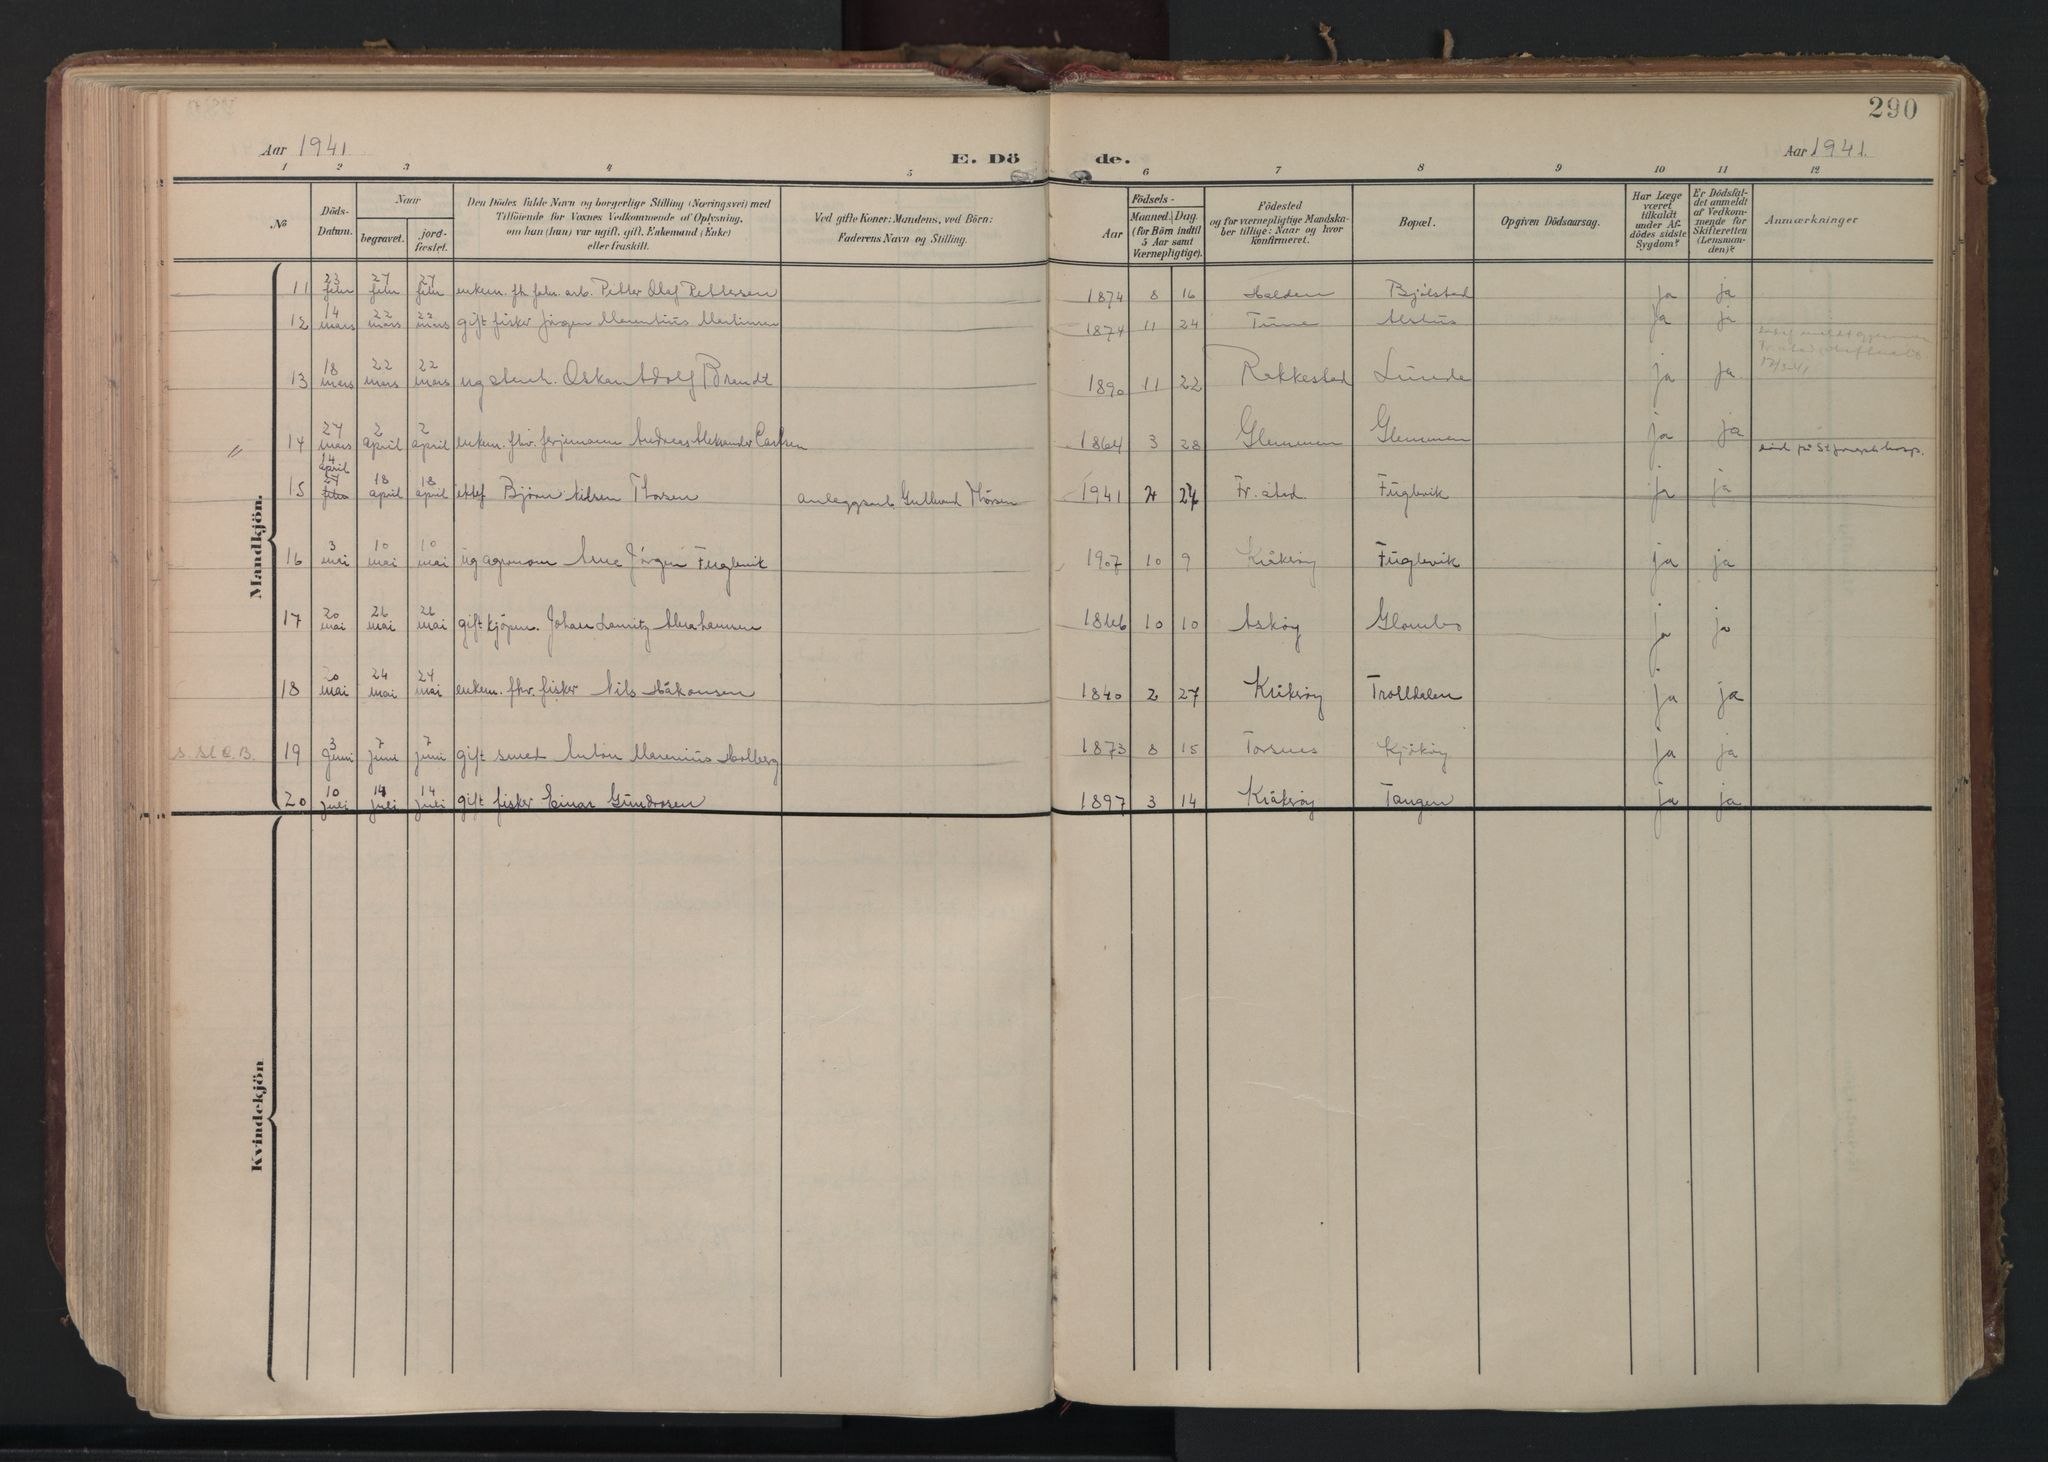 290
Aar 1941 E. Dö de. Aar 1941.
1 2 3 4 5 6 7 8 9 10 11 12
No
Döds-Datum.
Naar
begravet.
jord-fæstet.
Den Dödes fulde Navn og borgerlige Stilling (Næringsvei) med
Tilföiende for Voxnes Vedkommende af Oplysning,
om han (hun) var ugift, gift, Enkemand (Enke)
eller fraskilt.
Ved gifte Koner: Mandens, ved Börn:
Faderens Navn og Stilling.
Födsels-
Aar
Maaned. Dag.
(for Börn indtil
5 Aar samt
Værnepligtige).
Födested
og for værnepligtige Mandska-
ber tillige: Naar og hvor
konfirmeret.
Bopæl.
Opgiven Dödsaarsag.
Har Læge
været
tilkaldt
under Af-
dödes sidste
Sygdom?
Er Dödsfal-
det anmeldt
af Vedkom-
mende for
Skifteretten
(Lensman-
den)?
Anmærkninger
Mandkjön.
11 23 febr 27 febr 27 febr enkem. fhv. arb. Pitter Olaf Pettersen 1874 8 16 Halden Bjölstad ja ja
12 14 mars 22 mars 22 mars gift fisker Jörgen Marentius Martinsen 1874 11 24 Tune ja ja
13 18 mars 22 mars 22 mars ug stenh. Oskar Adolf Brandt 1890 11 22 Rakkestad Lunde ja ja 17/3-41
" 14 27 mars 2 april 2 april enkem. fhv. ferjemann Andreas Aleksander Carlsen 1864 3 28 Glemmen Glemmen ja ja död på St Josephs hosp.
15 14 april 27 febr 18 april 18 april ektef Björn Nilsen Thorsen anleggsarb. Gullund Thorsen 1941 2 27 Fr.stad Fuglevik ja ja
16 3 mai 10 mai 10 mai ug agronom Arne Jörgen Fuglevik 1907 10 9 Kråkeröy Fuglevik ja ja
17 20 mai 26 mai 26 mai gift kjöpm. Johan Lauritz Abrahamsen 1866 10 10 Asköy Glombo ja ja
18 20 mai 24 mai 24 mai enkem. fhv. fisker Nils Håkonsen 1840 2 27 Kråkeröy Trolldalen ja ja
19 3 juni 7 juni 7 juni gift smed Anton Marenius Holberg 1873 8 15 Torsnes Kjøköy ja ja
20 10 juli 14 juli 14 juli gift fisker Einar Gundersen 1897 3 14 Kråkeröy Tangen ja ja
Kvindekjön